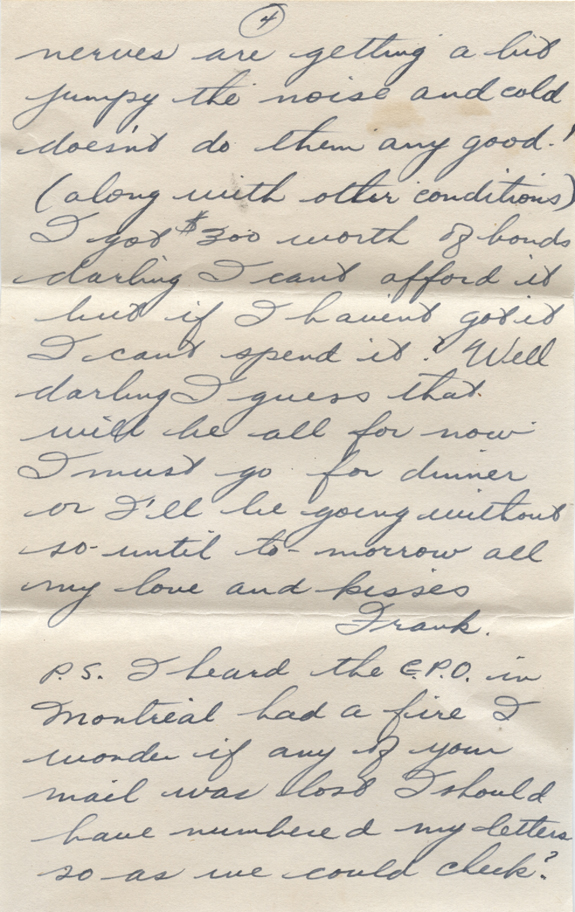 4
nerves are getting a bit
jumpy the noise and cold
doesn't do them any good.!
(along with other conditions)
I got $300 worth of bonds
darling I can't afford it
but if I haven't got it
I can't spend it? Well
darling I guess that
will be all for now
I must go for dinner
or I'll be going without
so until to-morrow all
my love and kisses
Frank.
P.S. I heard the G.P.O. in
Montreal had a fire I
wonder if any of your
mail was lost I should
have numbered my letters
so as we could check?